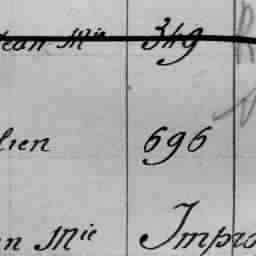 Jean Mie 349
lien 696
n Mie Impro